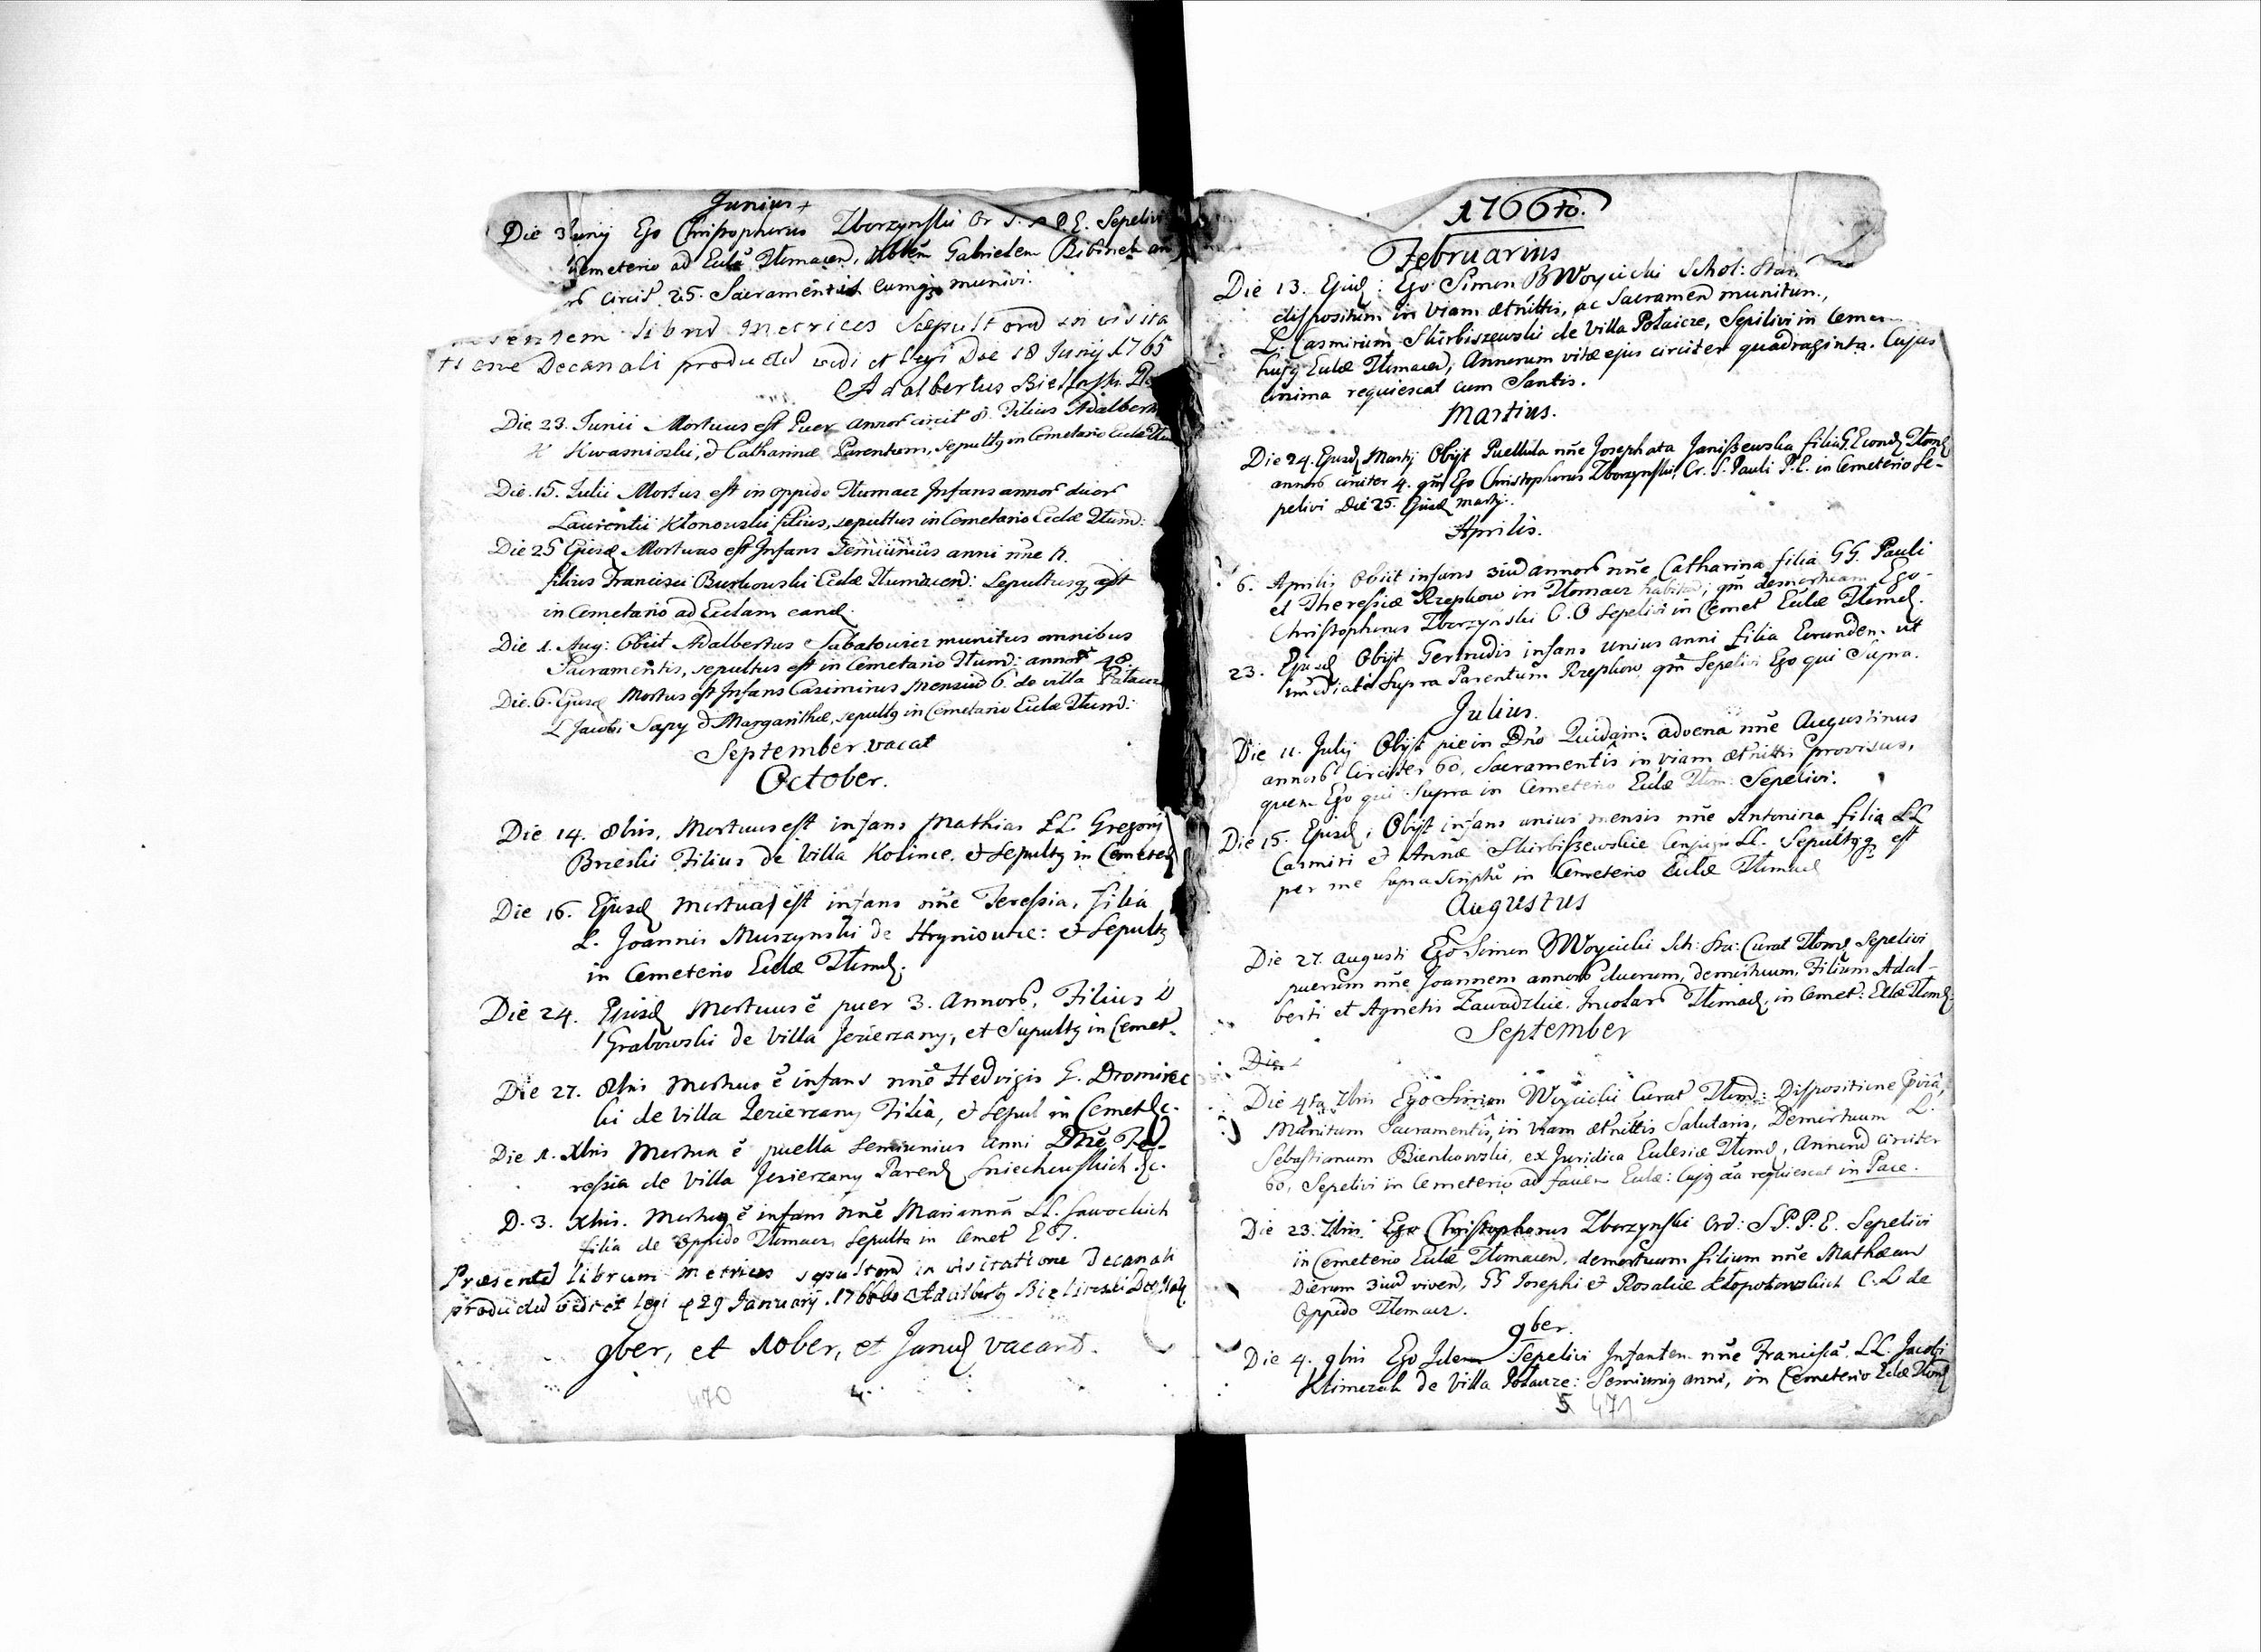 Junius
Die 3 Junij Ego Christophorus Zborzynski Or S. P. P. E. Sepelivi
Cemeterio ad Eccl Tlumacen, Gabrielem an
circit 25. Sacramentis eumq munivi.
librū metrices Sepultorū in visita
tione Decanali productū vidi et legi Die 18 Junij 1765
Adalbertus
Die 23. Junii Mortuus est Puer annor circit 8. Filius Adalberti
Kwasnioski, & Catharinæ Parentum, sepultg in Cemetario Eccle
Die. 15. Julii Mortus est in oppido Tlumacz Infans annor duor
Laurentii Kłonowski filius, sepultus in Cemetario Ecclæ Tlum:
Die 25 Ejusd Mortuus est Infans Semiunius anni nne
filius Francisci Burkowski Eccłæ Tlumacen: Sepultusq est
in Cemetario ad Ecclam eand.
Die 1. Aug: Obiit Adalbertus Sabatowicz munitus omnibus
Sacramentis, sepultus est in Cemetario Tlum: annor 48.
Die. 6. Ejusd Mortus est Infans Casimirus Mensiū 6. de villa
L Jacobi Sapy & Margarithæ, sepultg in Cemetario Eccłæ Tlum:
September vacat
October.
Die 14. 8bris, Mortuus est infans Mathias LL. Gregorij
Brzeski Filius de Villa Kolince. & Sepultg in Cemeter
Die 16. Ejusd Mortua est infans nñe Teressia, filia
L. Joannis Muszynski de Hryniowce: & Sepulta
in Cemeterio Eccłæ Tlumd.
Die 24. Ejusd Mortuus ē puer 3. Annorb, Filius
Grabowski de Villa Jezierzany, et Sepultg in Cemet.
Die 27. 8bris Mortua ē infans nñe Hedvigis G. Dromirec
ki de Villa Jezierzany Filia, & Sepul in Cemet &c.
Die 1. Xbris Mortua ē puella Semiunius anni Nñe Te-
ressia de Villa Jezierzany Parend Sniechowskich &c.
D. 3. Xbris. Mortug ē infans nñe Marianna LL. Sawockich
filia de Oppido Tlumacz, Sepulta in Cemet E T.
Præsentē librum metrices sepultorū in visitatione Decanali
productū vidi et legi 29 January 1766
9ber, et Xober, et Janud vacant.
470 4
1766to.
Februarius
Die 13. Ejusd: Ego Simon Woycicki Schol:
dispositum in viam ætnittis, ac Sacramen munitum,
L. Casmirum Skirbiszewski de Villa Potaicze, Sepelivi in Cemet
hujg Eccłæ Tlumacen, Annorum vitæ ejus circiter quadraginta. Cujus
anima requiescat cum Santis.
Martius.
Die 24. Ejusd Martij Obijt Puellula nñe Josephata Janiszewska filia
annorb circiter 4. qm Ego Christophorus Zborzynski Or. S. Pauli P. E. in Cemeterio Se-
pelivi Die 25. Ejusd Martij.
Aprilis.
6. Aprilis Obiit infans 3iū annorb nñe Catharina filia GG. Pauli
et Theressiæ Rzepkow in Tlomacz habitan; qm demortuam Ego
Christophorus Zborzynski C. O Sepelivi in Cemet Eccłæ Tlumd.
23. Ejusd Obijt Gertrudis infans unius anni filia Eorunden. ut
imediatè Supra Parentum Rzepkow qm Sepelivi Ego qui Supra.
Julius.
Die 11. Julij Obijt pie in Dno Quidam: advena nñe Augustinus
annorb Circiter 60, Sacramentis in viam ætnittis provisus,
quem Ego qui Supra in Cemeterio Eccłæ Tlum: Sepelivi.
Die 15. Ejusd; Obijt infans unius mensis nñe Antonina filia LL
Casmiri & Annæ Skirbiszewskie Conjugū LL. Sepultgq est
per me supra Scriptū in Cemeterio Eccłæ Tlumad
Augustus
Die 27. Augusti Ego Simon Woycicki Sch: Curat Tlumd Sepelivi
puerum nñe Joannem annorb duorum, demortuum, Filium Adal-
berti et Agnetis Zawadzkie, Incolarb Tlumad, in Cemet: Eccłæ Tlumd.
September
Die
Die 4ta 7bris Ego Simon Woycicki Curat Tlum: Dispositione
Munitum Sacramentis, in Viam ætnittis Salutaris, Demortuum L.
Sebastianum Bienkowski, ex Juridica Eclesiæ Tlumd, Annorū circiter
60, Sepelivi in Cemeterio ad Eccłæ: Cujg aa requiescat in Pace.
Die 23. 7bris Ego Christophorus Zborzynski Ord: S P. P. E. Sepelivi
in Cemeterio Eccłæ Tlumacen, demortuum filium nñe Mathæum
Dierum 3iū viven, GG Josephi & Rosaliæ Kłopotowskich C. L de
Oppido Tlumacz.
9ber.
Die 4. 9bris Ego Idem Sepelivi Infantem nñe Franciscā, LL. Jacobi
Klimczak de Villa Potaicze: Semiunig anni, in Cemeterio Eccłæ Tlumd
5 471